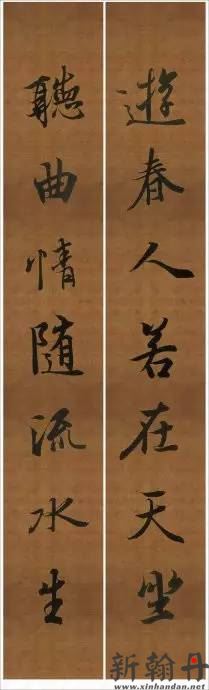 遊春人若在天坐
聽曲情随流水生
新翰丹
www.xinhandan.net